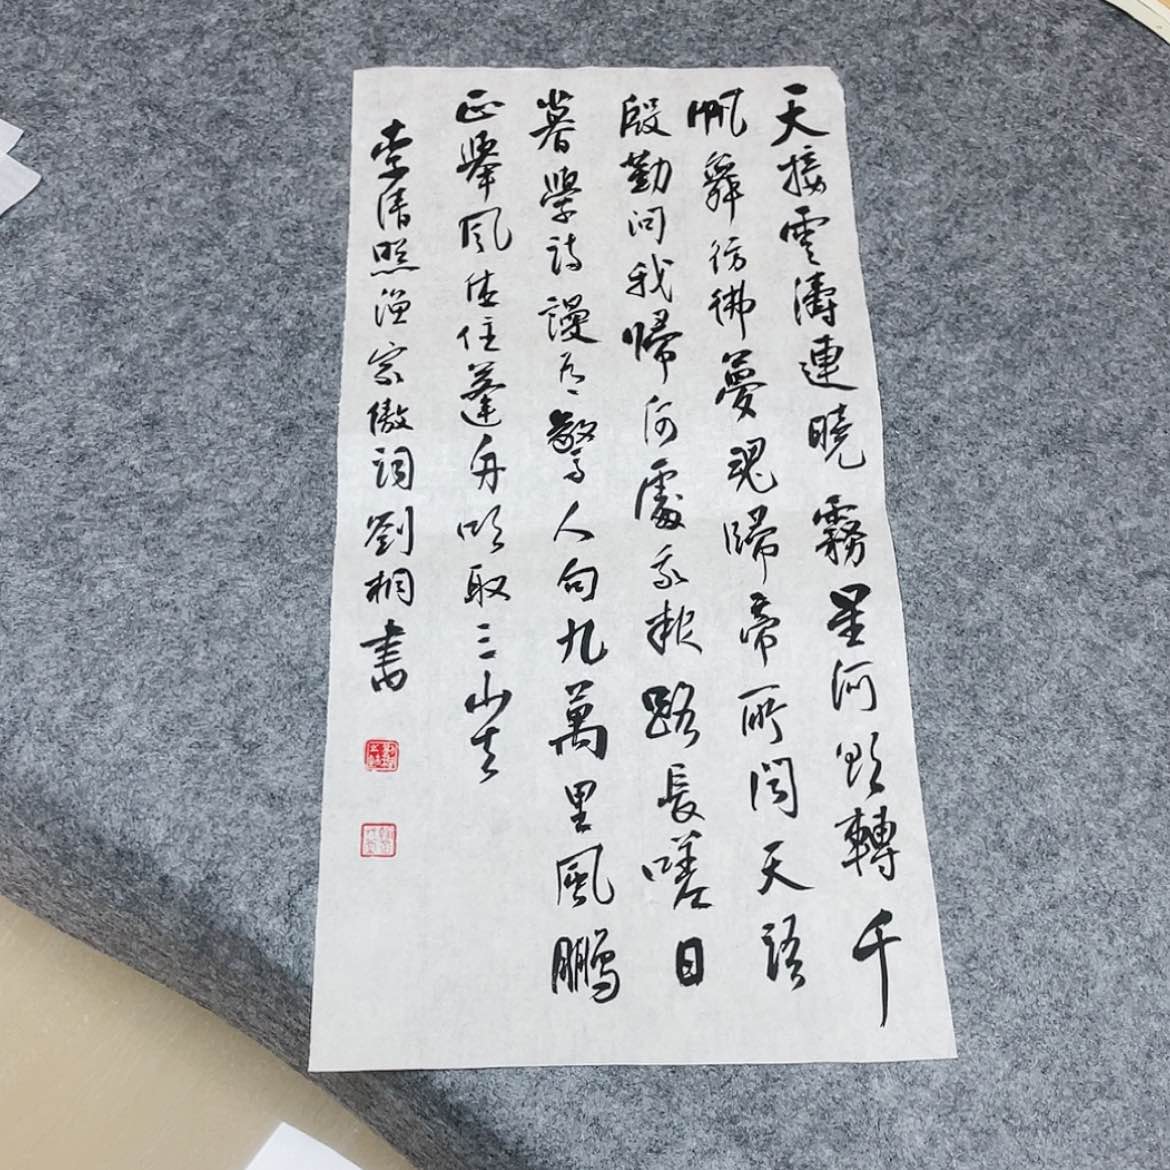 天接雲濤連曉霧星河欲轉千
帆舞彷彿夢魂歸帝所聞天語
殷勤問我歸何處我報路長嗟日
暮學詩謾有驚人句九萬里風鵬
正舉風休住蓬舟吹取三山去
李清照漁家傲詞劉桐書